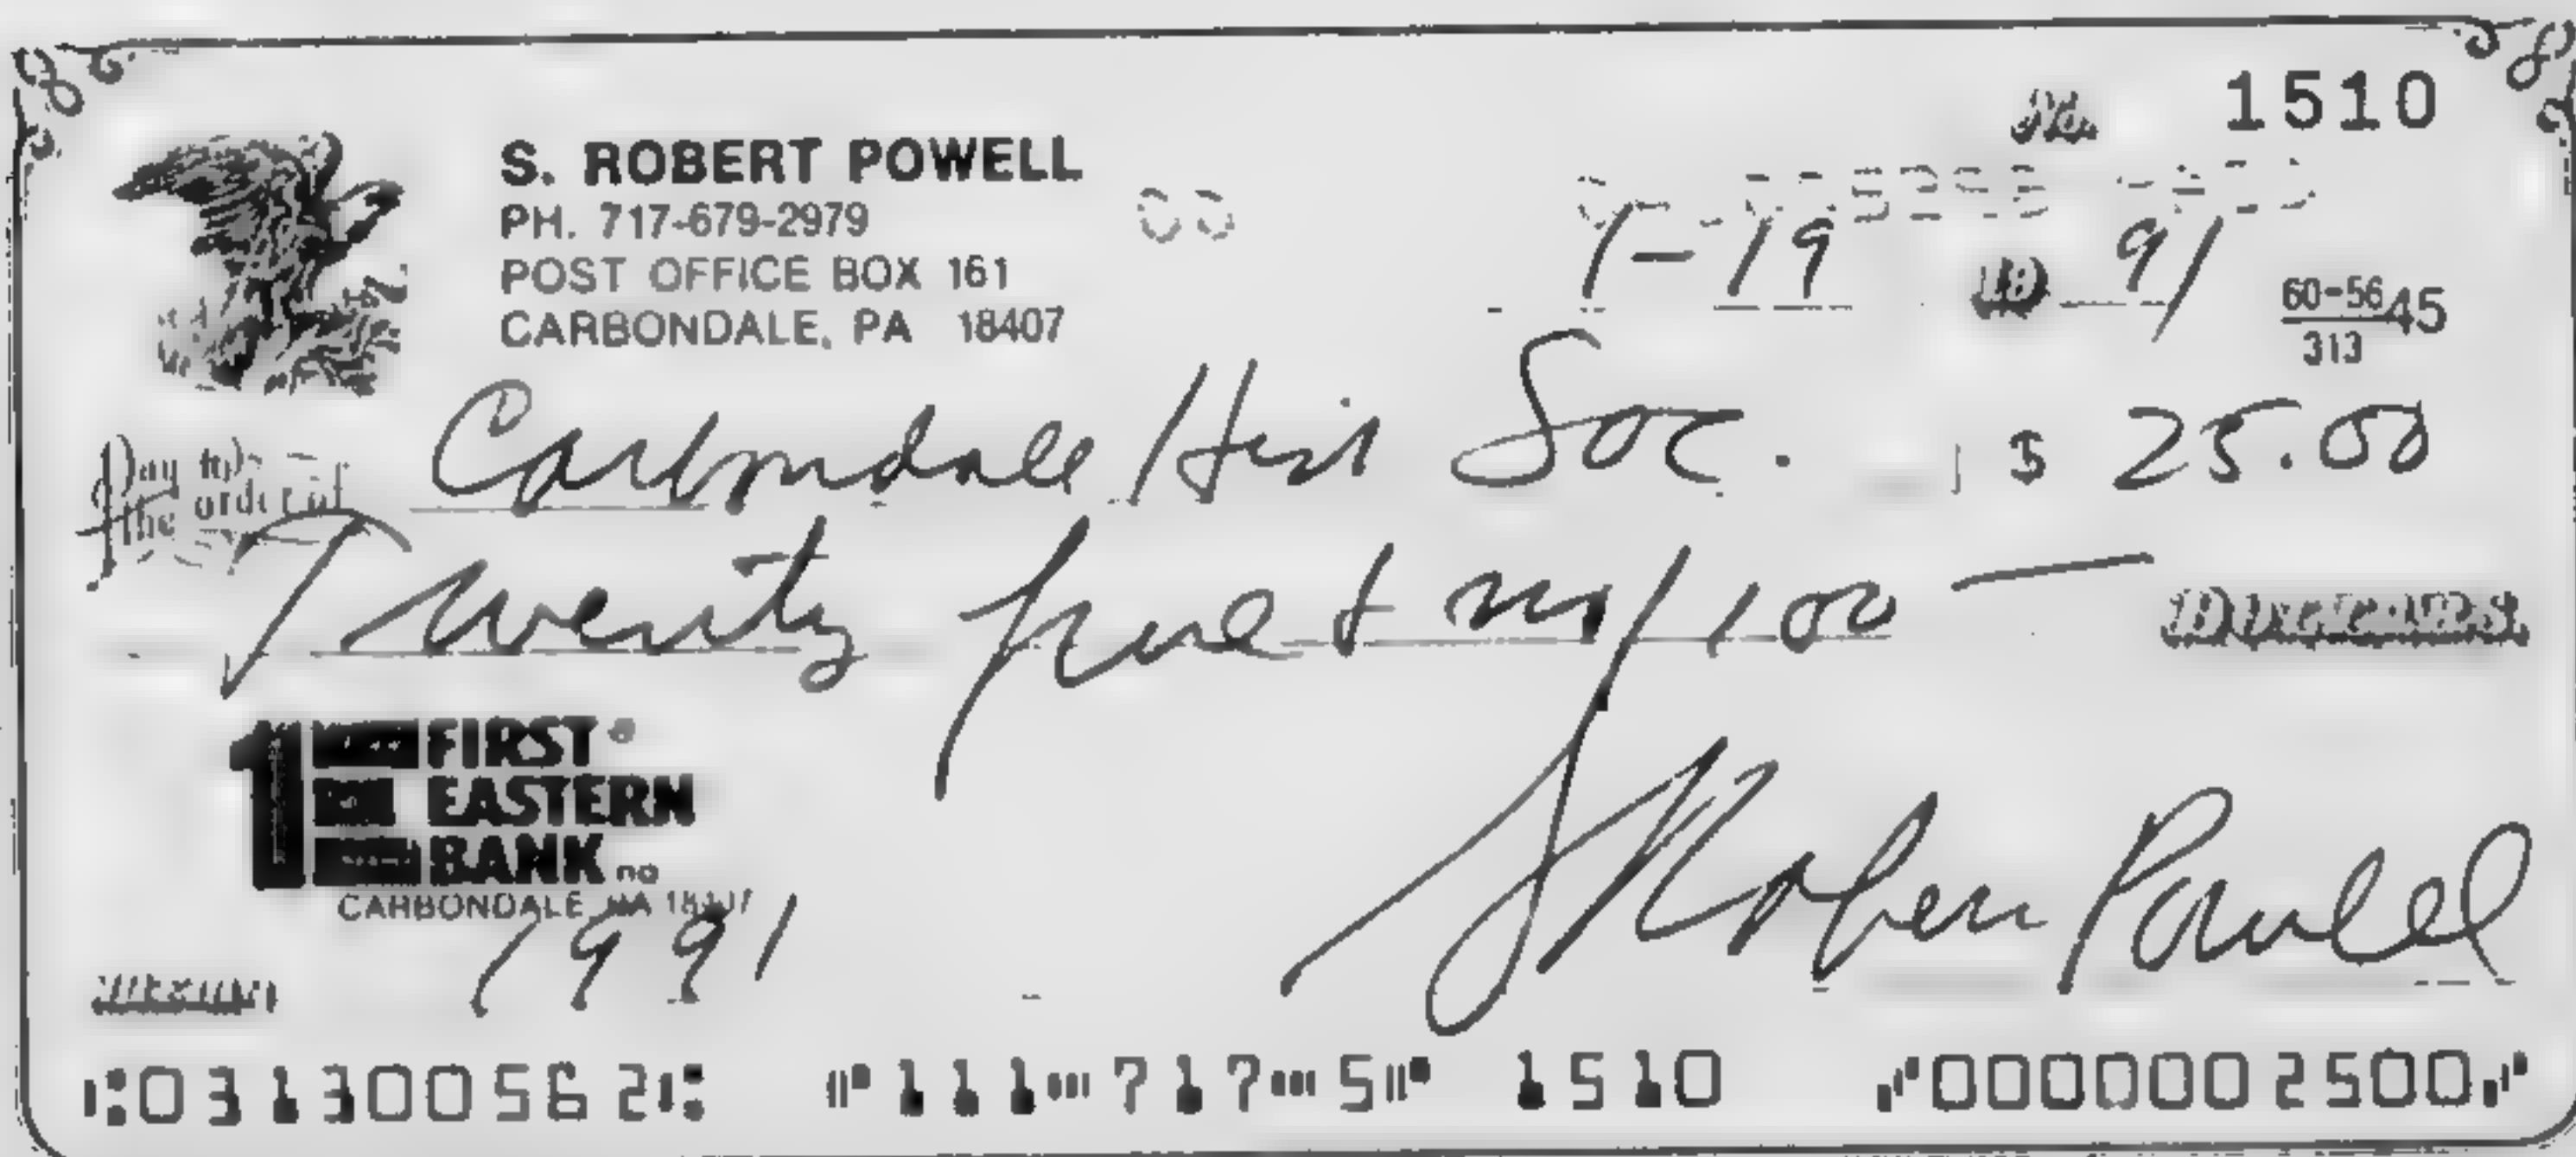 No. 1510
S. ROBERT POWELL
PH. 717-679-2979
POST OFFICE BOX 161
CARBONDALE, PA 18407
1-19 19 91
60-56 45
313
Pay to the order of Carbondale Hist Soc. $ 25.00
Twenty five & no/100 — Dollars
1 FIRST
EASTERN
BANK na
CARBONDALE, PA 18407
Memo 1991
S Robert Powell
⑆031300562⑆ ⑈111⑉717⑉5⑈ 1510 ⑇0000002500⑇